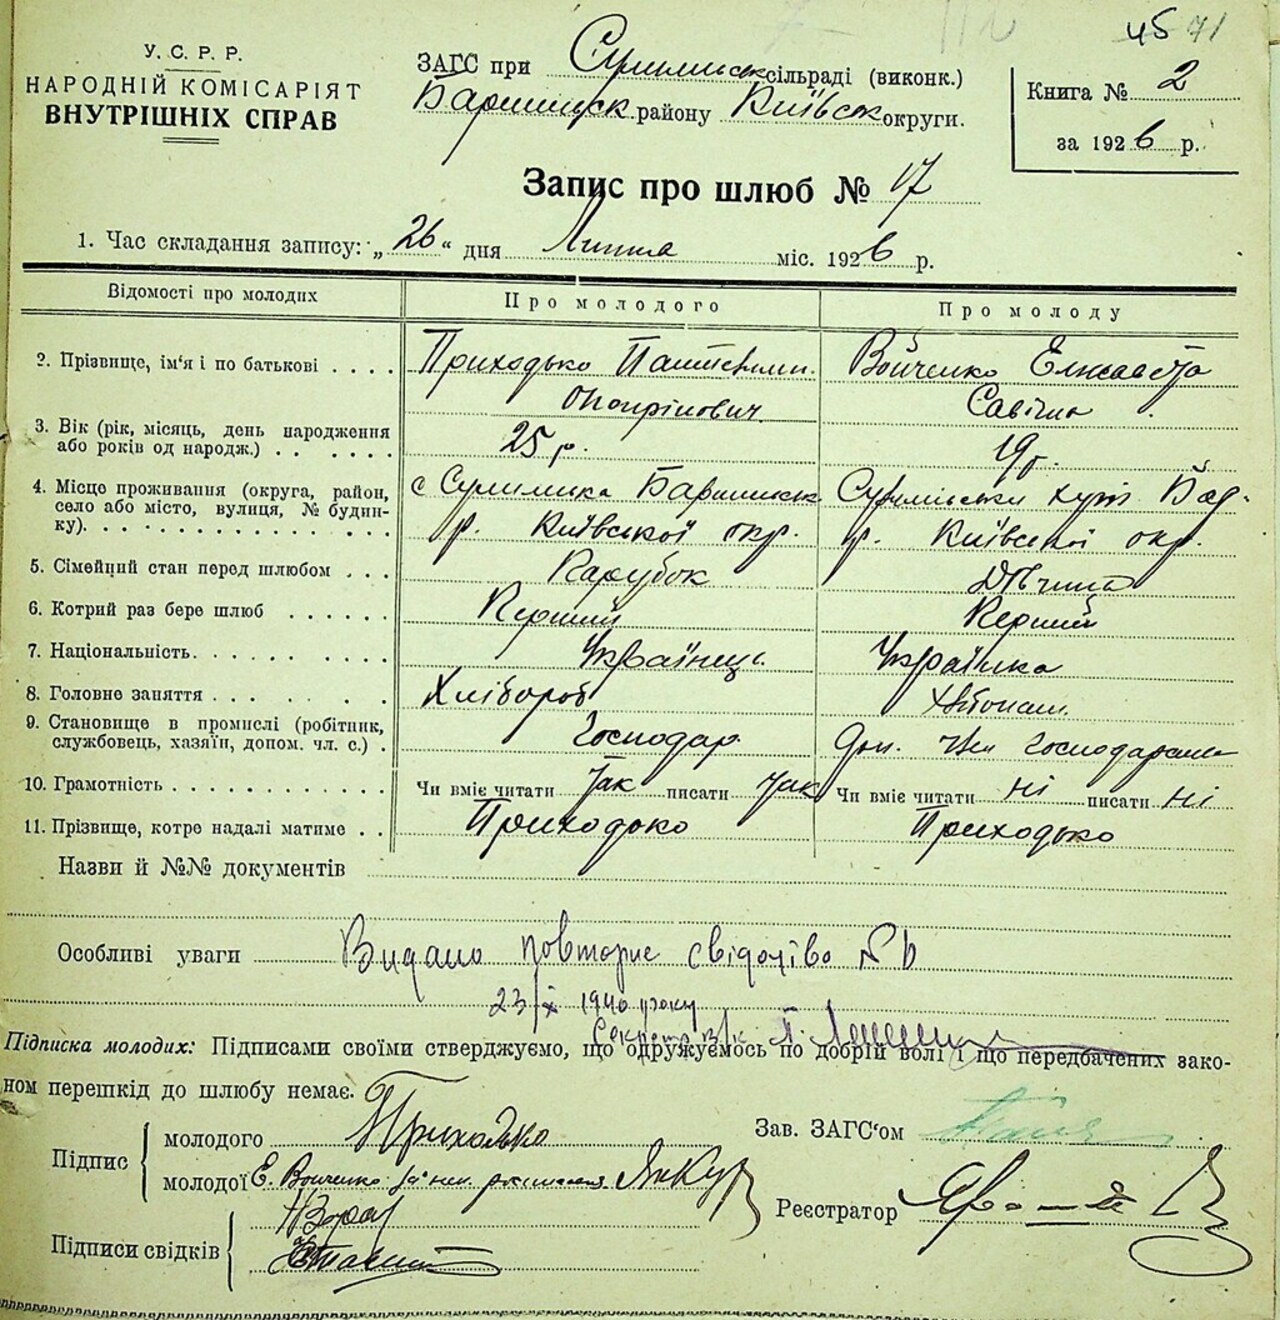 45 71
У. С. Р. Р.
НАРОДНІЙ КОМІСАРІЯТ
ВНУТРІШНІХ СПРАВ
ЗАГС при Сулимівськ сільраді (виконк.)
Баришпіск району Київськ округи.
Книга № 2
за 1926 р.
Запис про шлюб № 17
1. Час складання запису: „26“ дня Липня міс. 1926 р.
Відомості про молодих Про молодого Про молоду
2. Прізвище, ім'я і по батькові . . . . Приходько Пантелимн. Войченко Елисавета
Онопрійович Савічна
3. Вік (рік, місяць, день народження
або років од народж.) . . . . . . 25 р. 19 р.
4. Місце проживання (округа, район, с Сулимівка Баришпіськ Сулимівськи хут. Бар.
село або місто, вулиця, № будин-
ку). . . . . . . . . . . . . . р. Київської окр. р. Київської окр.
5. Сімейний стан перед шлюбом . . . Парубок Дівчина
6. Котрий раз бере шлюб . . . . . . Перший Перший
7. Національність. . . . . . . . . . Українець Українка
8. Головне заняття . . . . . . . . . Хлібороб
9. Становище в промислі (робітник,
службовець, хазяїн, допом. чл. с.) . Господар Доп. член господарства
10. Грамотність . . . . . . . . . . . Чи вміє читати Так писати Так Чи вміє читати ні писати ні
11. Прізвище, котре надалі матиме . . Приходько Приходько
Назви й №№ документів
Особливі уваги Видано повторне свідоцтво № 6
23/X 1940 року
Секретар
Підписка молодих: Підписами своїми стверджуємо, що одружуємось по добрій волі і що передбачених зако-
ном перешкід до шлюбу немає.
Підпис молодого Приходько
Зав. ЗАГС'ом
молодої Е. Войченко
Реєстратор
Підписи свідків